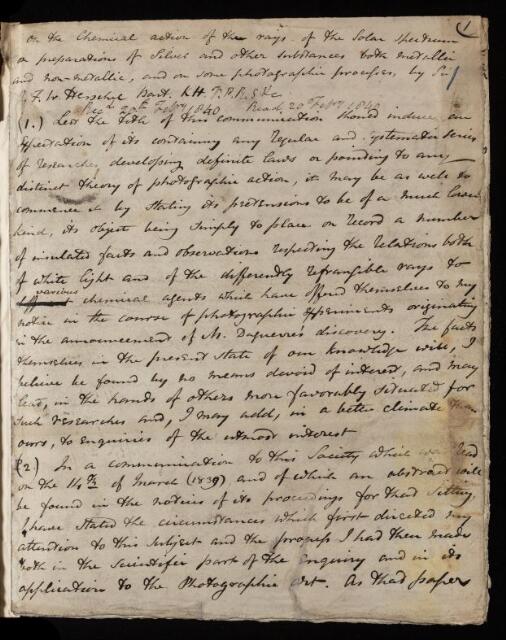 1
on the Chemical action of the rays of the Solar Spectrum
on preparations of Silver and other substances both metallic
and non-metallic, and on some photographic processes, by Sir
J. F. W. Herschel Bart. K.H. V.P.R.S. &c
Recd. 20th Feby 1840 Read 20 Feby 1840
(1.) Lest the title of this communication should induce an
expectation of its containing any regular and systematic series
of researches developing definite laws or pointing to any
distinct theory of photographic action, it may be as well to
commence it by stating its pretensions to be of a much lower
kind, its object being simply to place on record a number
of insulated facts and observations respecting the relations both
of white light and of the differently refrangible rays to
various
chemical agents which have offered themselves to my
notice in the course of photographic experiments originating
in the announcement of M. Daguerre's discovery. The facts
themselves in the present state of our knowledge will, I
believe be found by no means devoid of interest, and may
lead, in the hands of others more favorably situated for
such researches and, I may add, in a better climate than
ours, to enquiries of the utmost interest
(2) In a communication to this Society which was read
on the 14th of March (1839) and of which an abstract will
be found in the notices of its proceedings for that sitting,
I have stated the circumstances which first directed my
attention to this subject and the progress I had then made
both in the Scientific part of the enquiry and in its
application to the Photographic Art. As that paper